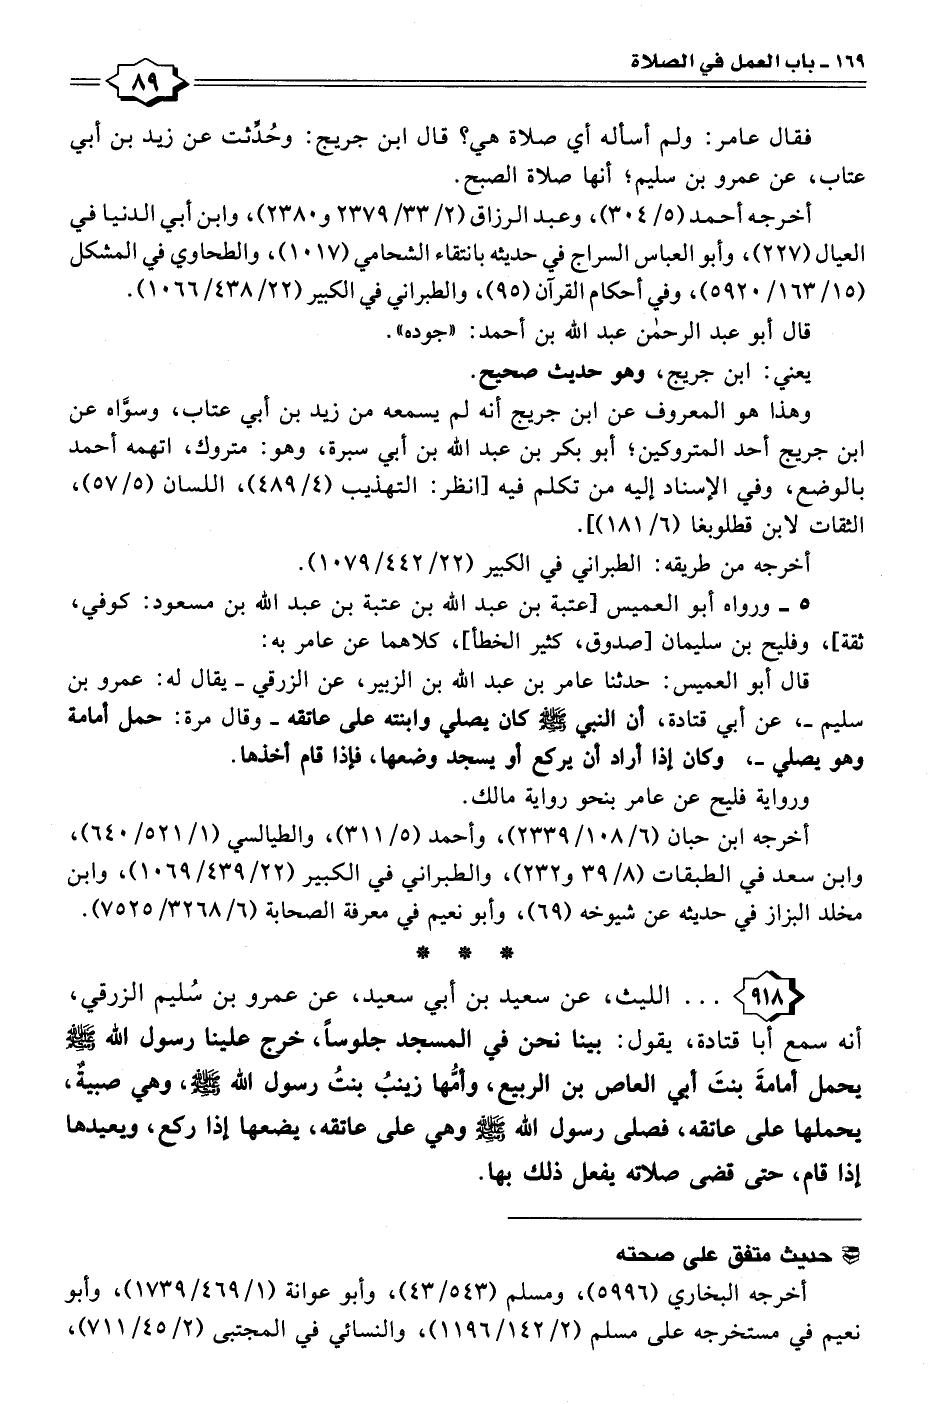 ١٦٩ ـ باب العمل في الصلاة
٨٩
فقال عامر: ولم أسأله أي صلاة هي؟ قال ابن جريج: وحُدِّثت عن زيد بن أبي
عتاب، عن عمرو بن سليم؛ أنها صلاة الصبح.
أخرجه أحمد (٥/ ٣٠٤)، وعبد الرزاق (٢/ ٣٣/ ٢٣٧٩ و٢٣٨٠)، وابن أبي الدنيا في
العيال (٢٢٧)، وأبو العباس السراج في حديثه بانتقاء الشحامي (١٠١٧)، والطحاوي في المشكل
(١٥/ ١٦٣/ ٥٩٢٠)، وفي أحكام القرآن (٩٥)، والطبراني في الكبير (٢٢/ ٤٣٨/ ١٠٦٦).
قال أبو عبد الرحمٰن عبد الله بن أحمد: «جوده».
يعني: ابن جريج، وهو حديث صحيح.
وهذا هو المعروف عن ابن جريج أنه لم يسمعه من زيد بن أبي عتاب، وسوَّاه عن
ابن جريج أحد المتروكين؛ أبو بكر بن عبد الله بن أبي سبرة، وهو: متروك، اتهمه أحمد
بالوضع، وفي الإسناد إليه من تكلم فيه [انظر: التهذيب (٤/ ٤٨٩)، اللسان (٥/ ٥٧)،
الثقات لابن قطلوبغا (٦/ ١٨١)].
أخرجه من طريقه: الطبراني في الكبير (٢٢/ ٤٤٢/ ١٠٧٩).
٥ ـ ورواه أبو العميس [عتبة بن عبد الله بن عتبة بن عبد الله بن مسعود: كوفي،
ثقة]، وفليح بن سليمان [صدوق، كثير الخطأ]، كلاهما عن عامر به:
قال أبو العميس: حدثنا عامر بن عبد الله بن الزبير، عن الزرقي ـ يقال له: عمرو بن
سليم ـ، عن أبي قتادة، أن النبي ﷺ كان يصلي وابنته على عاتقه ـ وقال مرة: حمل أمامة
وهو يصلي ـ، وكان إذا أراد أن يركع أو يسجد وضعها، فإذا قام أخذها.
ورواية فليح عن عامر بنحو رواية مالك.
أخرجه ابن حبان (٦/ ١٠٨/ ٢٣٣٩)، وأحمد (٥/ ٣١١)، والطيالسي (١/ ٥٢١/ ٦٤٠)،
وابن سعد في الطبقات (٨/ ٣٩ و٢٣٢)، والطبراني في الكبير (٢٢/ ٤٣٩/ ١٠٦٩)، وابن
مخلد البزاز في حديثه عن شيوخه (٦٩)، وأبو نعيم في معرفة الصحابة (٦/ ٣٢٦٨/ ٧٥٢٥).
* * *
٩١٨ ... الليث، عن سعيد بن أبي سعيد، عن عمرو بن سُليم الزرقي،
أنه سمع أبا قتادة، يقول: بينا نحن في المسجد جلوساً، خرج علينا رسول الله ﷺ
يحمل أمامةَ بنتَ أبي العاص بن الربيع، وأمُّها زينبُ بنتُ رسول الله ﷺ، وهي صبيةٌ،
يحملها على عاتقه، فصلى رسول الله ﷺ وهي على عاتقه، يضعها إذا ركع، ويعيدها
إذا قام، حتى قضى صلاته يفعل ذلك بها.
حديث متفق على صحته
أخرجه البخاري (٥٩٩٦)، ومسلم (٥٤٣/ ٤٣)، وأبو عوانة (١/ ٤٦٩/ ١٧٣٩)، وأبو
نعيم في مستخرجه على مسلم (٢/ ١٤٢/ ١١٩٦)، والنسائي في المجتبى (٢/ ٤٥/ ٧١١)،